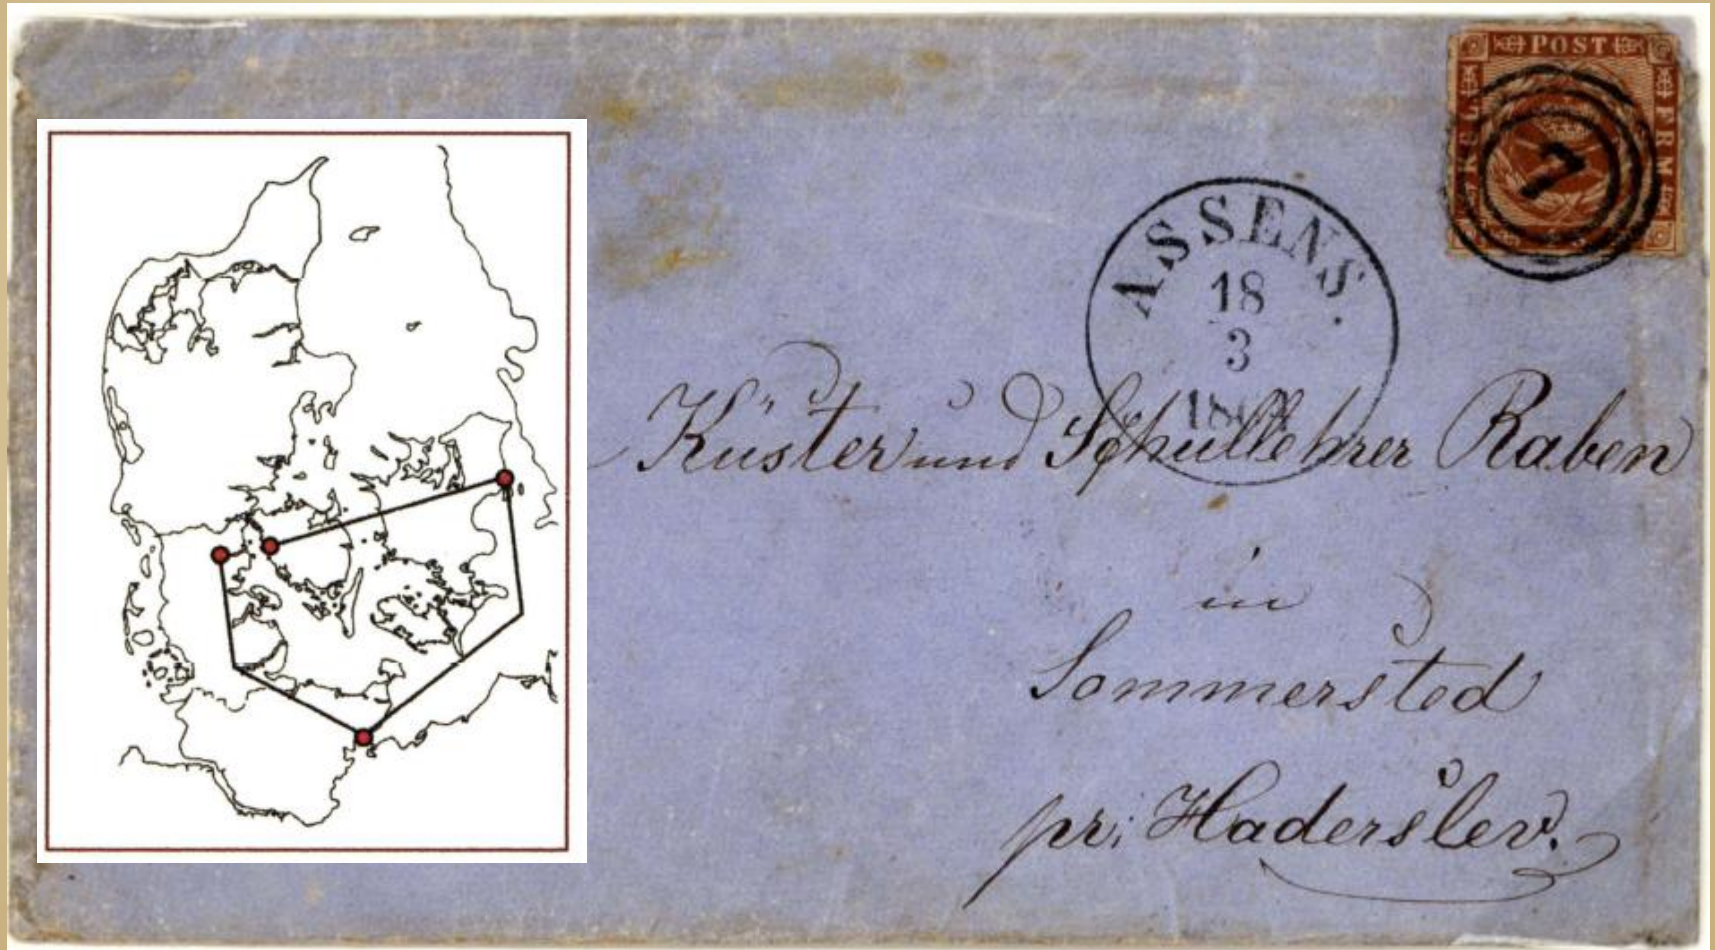 POST
KGL
FRM
7
ASSENS.
18
3
Küster und Schullehrer Raben
in
Sommersted
pr: Haderslev.